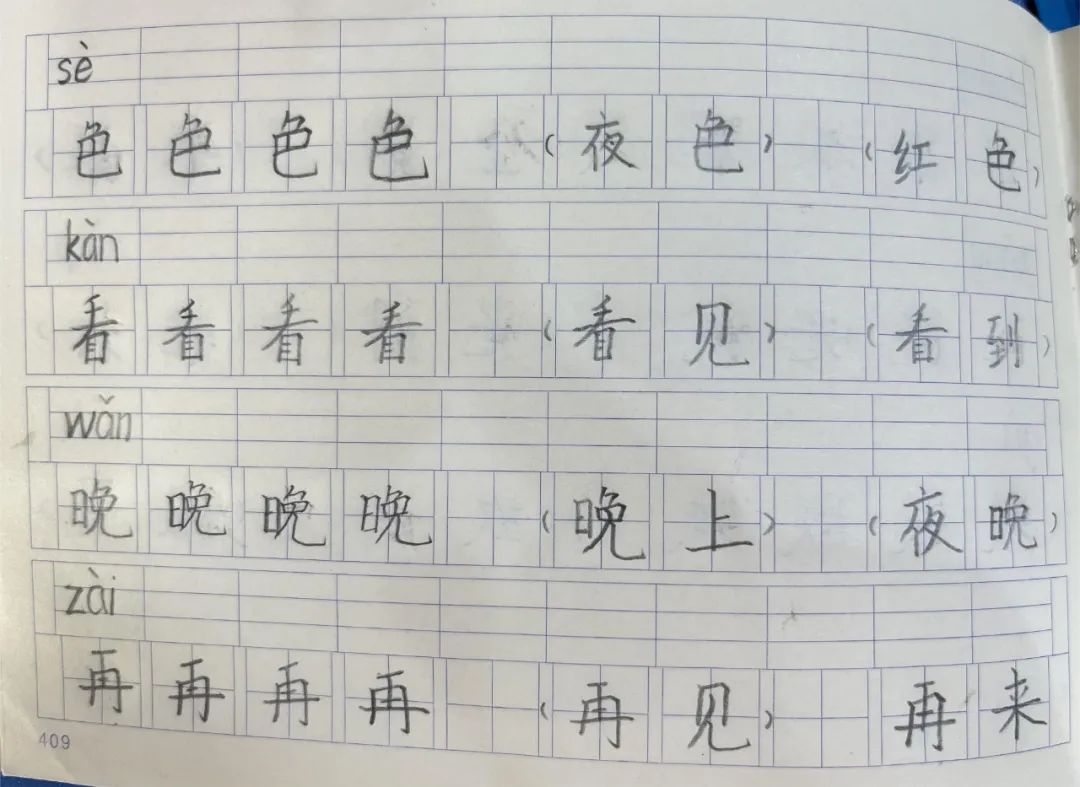 sè
色 色 色 色 (夜色) (红色)
kàn
看 看 看 看 (看见) (看到)
wǎn
晚 晚 晚 晚 (晚上) (夜晚)
zài
再 再 再 再 (再见) 再来
409